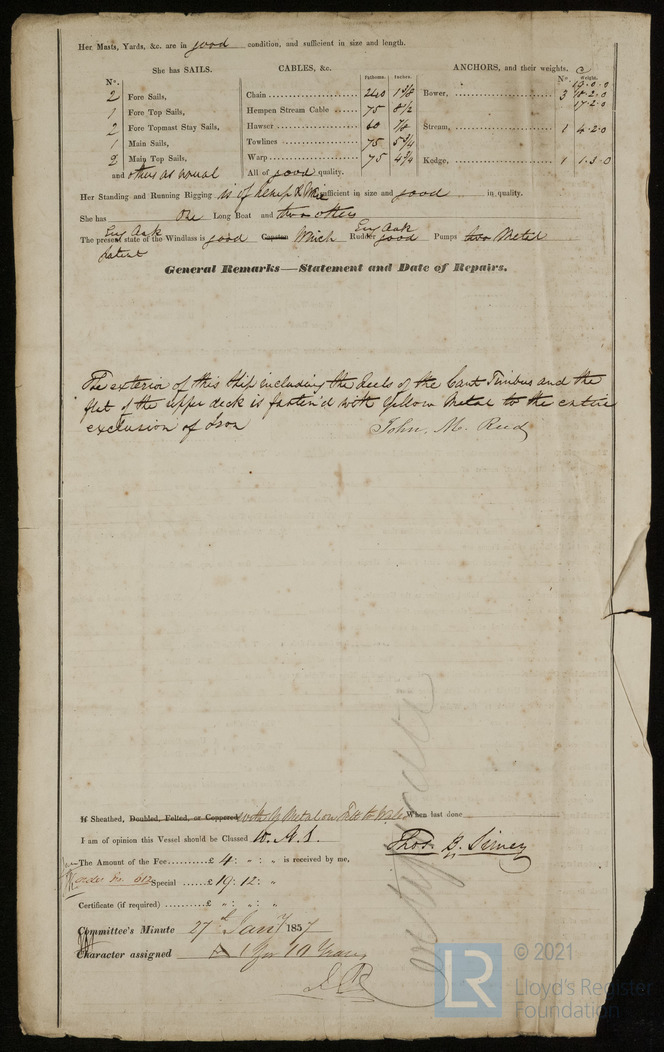 Her Masts, Yards, &c. are in good condition, and sufficient in size and length.
She has SAILS.
CABLES, &c.
ANCHORS, and their weights.
N°.
Fathoms.
Inches.
N°.
Weight.
C
2 Fore Sails,
1 Fore Top Sails,
2 Fore Topmast Stay Sails,
1 Main Sails,
2 Main Top Sails,
and others as usual
Chain 240 1 5/8
Hempen Stream Cable 75 8 1/2
Hawser 60 7/8
Towlines 75 5 3/4
Warp 75 4 3/4
All of good quality.
19.0.0
Bower, 3 18.2.0
17.2.0
Stream, 1 4.2.0
Kedge, 1 1.3.0
Her Standing and Running Rigging is of hemp & Wire sufficient in size and good in quality.
She has One Long Boat and two others
Eng Oak Eng Oak
The present state of the Windlass is good Capstan Which Rudder good Pumps two Metal
patent
General Remarks—Statement and Date of Repairs.
The exterior of this Ship including the heels of the Cant Timbers and the
flat of the upper deck is fasten'd with Yellow Metal to the entire
exclusion of Iron
John. M. Reid
If Sheathed, Doubled, Felted, or Coppered with Y Metal on Felt to Wales When last done
I am of opinion this Vessel should be Classed 10. A. 1.
Thos. B. Simey
The Amount of the Fee £ 4 : „ : „ is received by me,
order No. 612 Special £ 19 : 12 : „
Certificate (if required) £ „ : „ : „
Committee's Minute 27th Jany 1857
Character assigned A 1 for 10 Years
Certificate
LR
© 2021
Lloyd's Register
Foundation